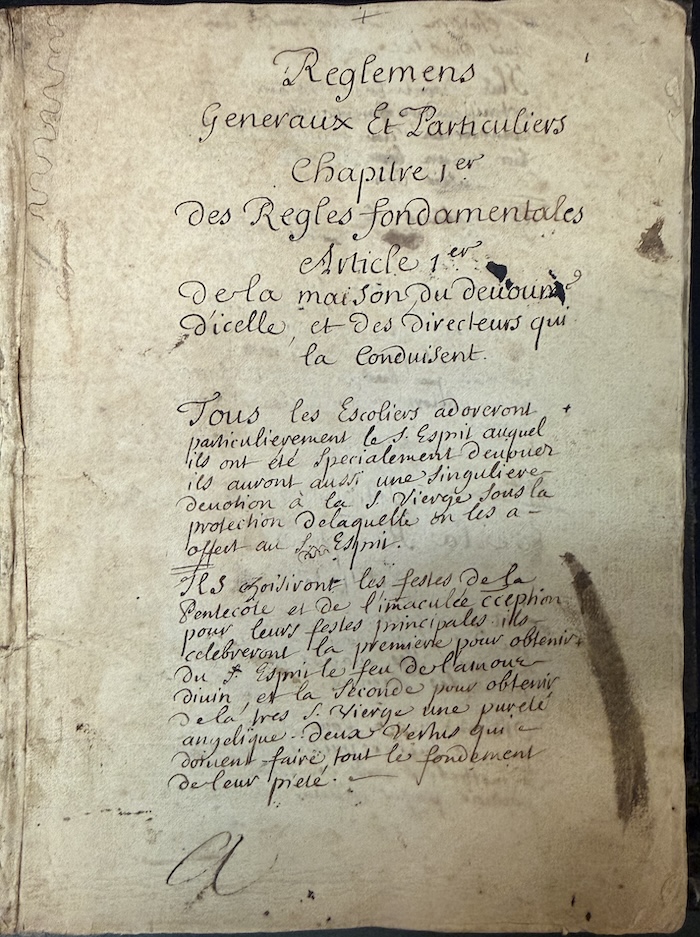 +
Reglemens
Generaux Et Particuliers
Chapitre 1er
des Regles fondamentales
Article 1er
De la maison, du devouem
d'icelle, et des directeurs qui
la Conduisent.
Tous les Escoliers adoreront +
particulierement le S. Esprit auquel
ils ont été specialement devouez
ils auront aussi une singuliere
devotion à la S. Vierge sous la
protection delaquelle on les a
offert au St Esprit.
Ils choisiront les festes de la
Pentecôte et de l'imaculée cception
pour leurs festes principales ils
celebreront la premiere pour obtenir
du St Esprit le feu de l'amour
divin, et la seconde pour obtenir
dela tres S. Vierge une pureté
angelique. deux Vertus qui
doivent faire tout le fondement
de leur pieté.
A